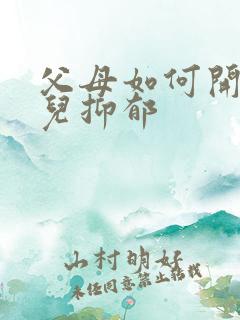 父母如何開
兒抑郁
山村明好
未经同意禁止转载